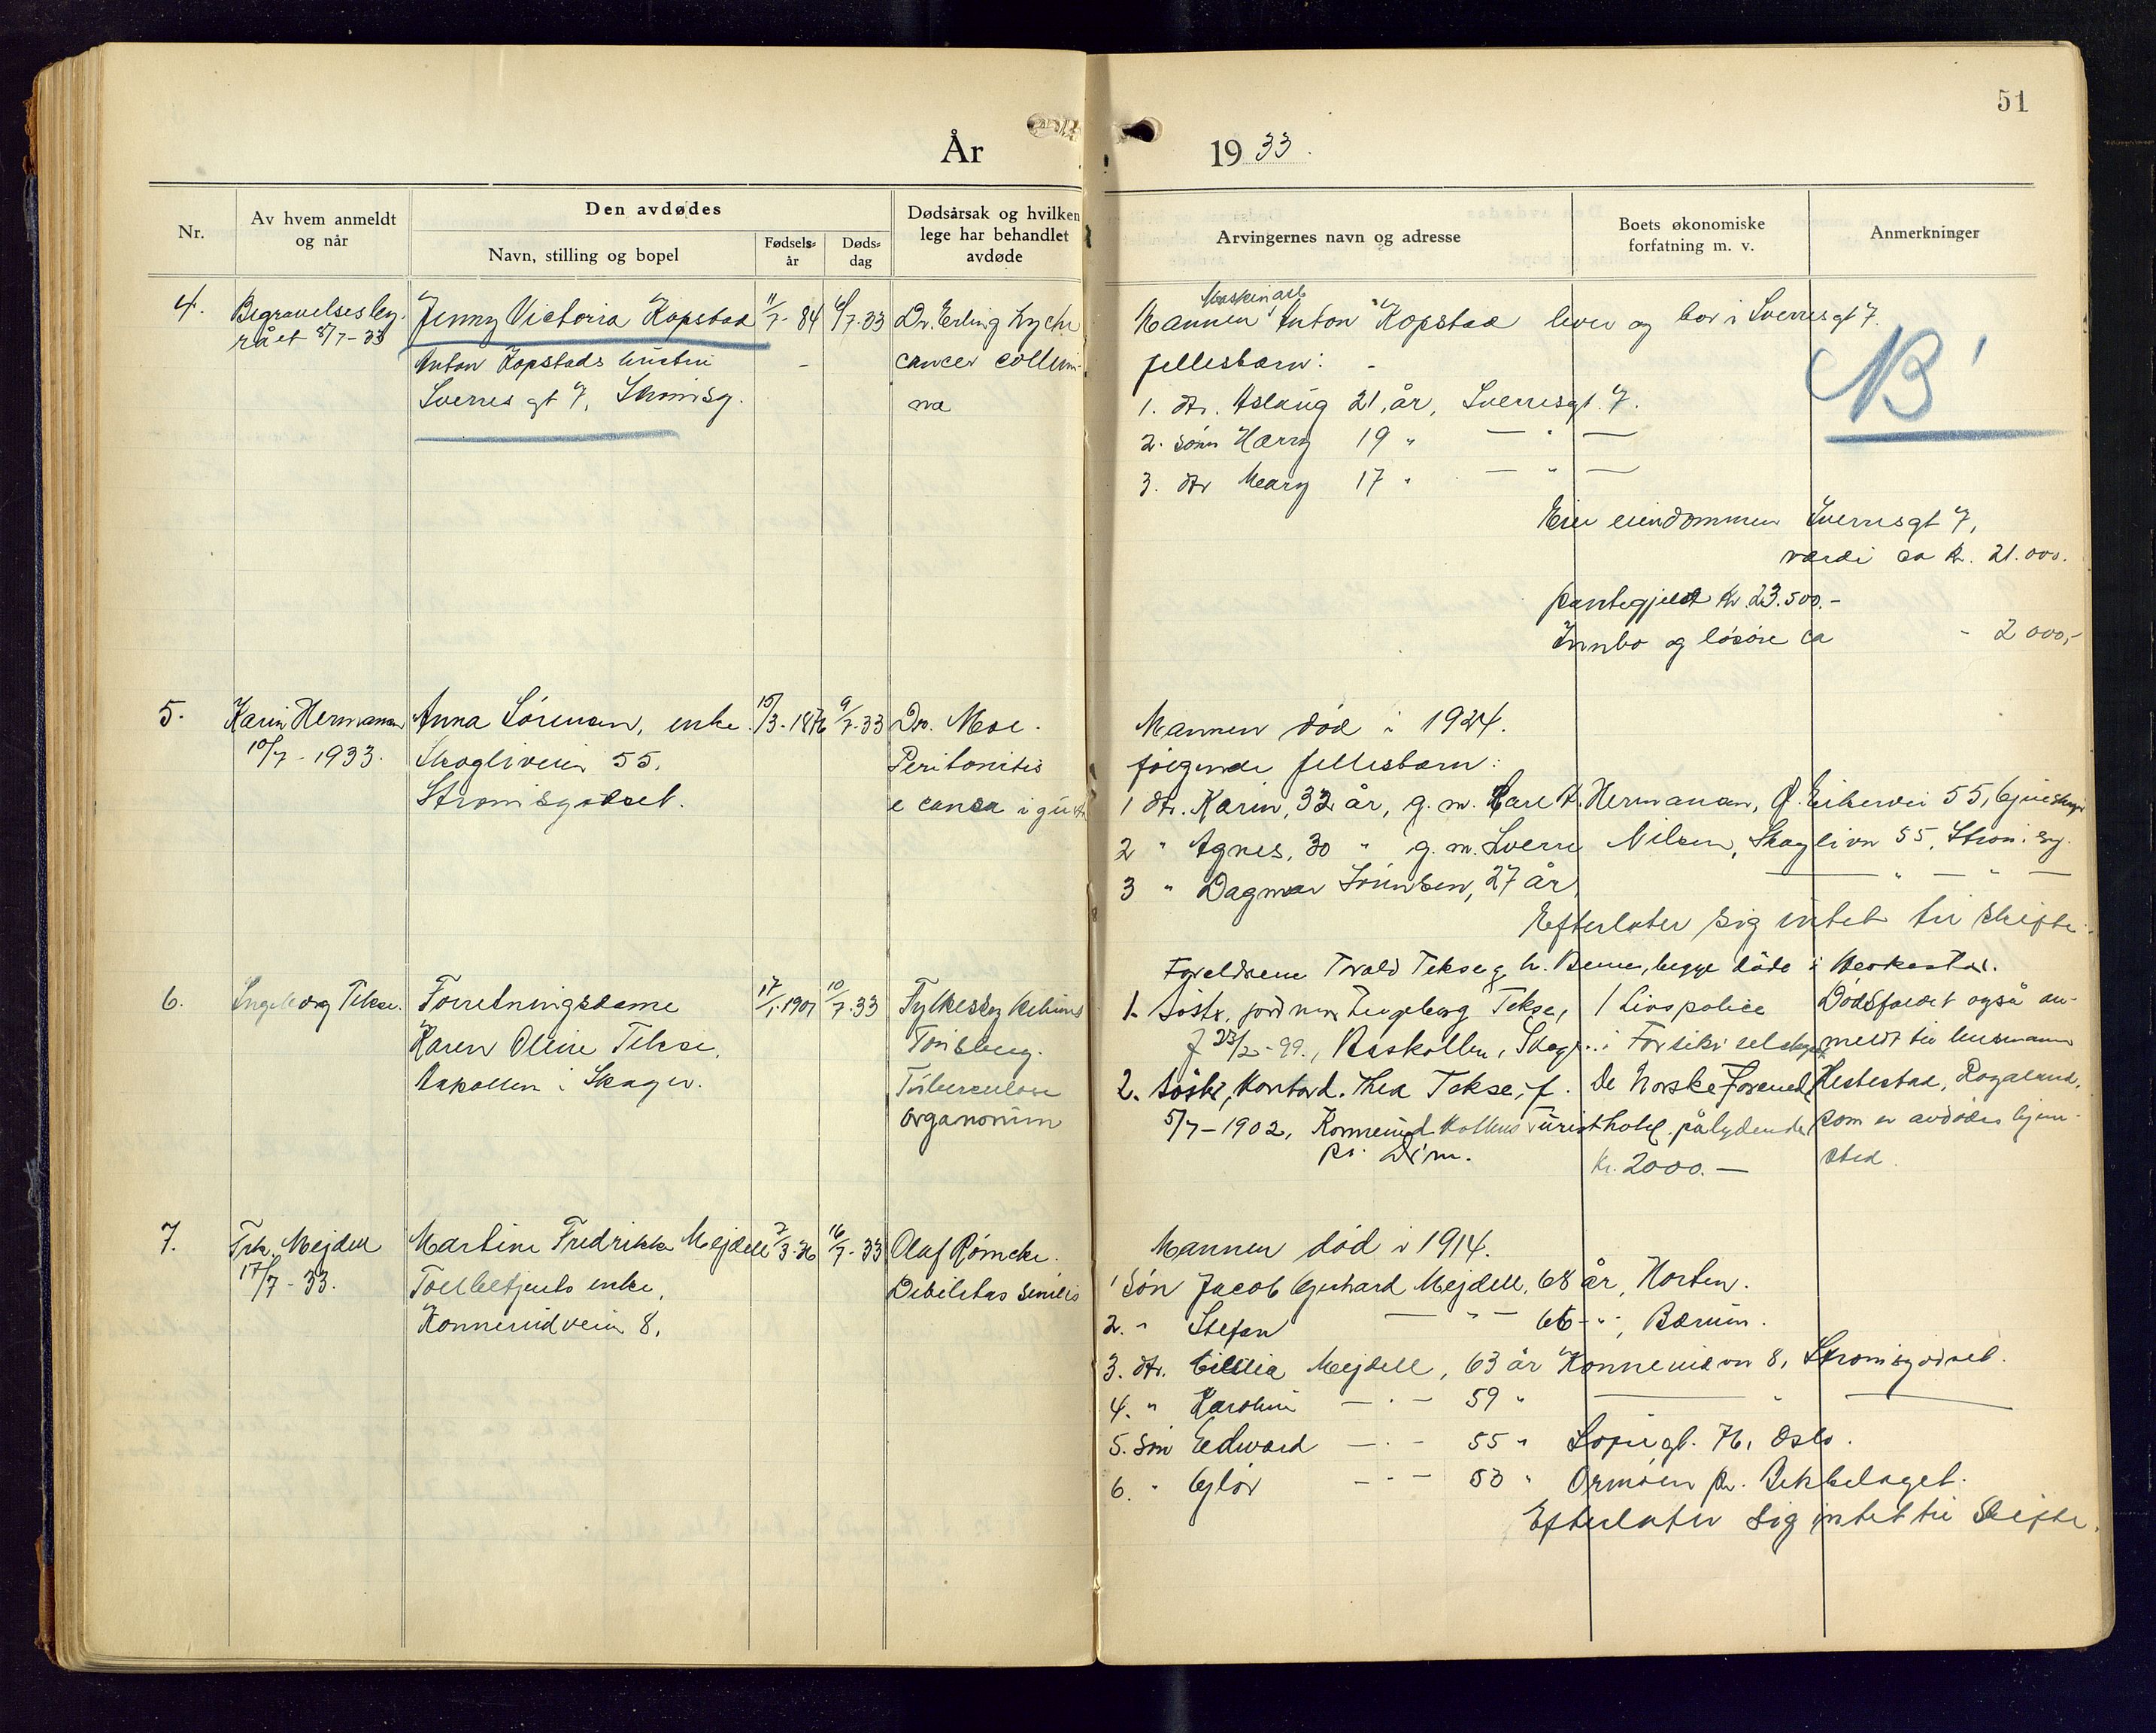 51
År 1933.
Nr.
Av hvem anmeldt og når
Den avdødes
Navn, stilling og bopel
Fødsels-år
Døds-dag
Dødsårsak og hvilken lege har behandlet avdøde
Arvingernes navn og adresse
Boets økonomiske forfatning m. v.
Anmerkninger
4.
Begravelsesby.
rået 8/7-33
Jenny Victoria Kopstad
Anton Kopstads hustru
Sverres gt 7, Strømsg.
11/7-84
6/7.33
Dr. Erling Lyche
cancer
Maskinarb
Mannen Anton Kopstad lever og bor i Sverresgt 7.
fellesbarn:
1. dtr. Aslaug 21 år, Sverresgt. 7.
2. sønn Harry 19 " — " —
3. dtr Mary 17 " — " —
Eier eiendommen Sverresgt 7,
verdi ca kr. 21.000.
pantegjeld kr. 23.500.-
Innbo og løsøre ca - 2000,-
5.
Karin Hermansen
10/7-1933.
Anna Sørensen, enke
Skogliveien 55,
Strømsgodset.
15/3-1876
9/7-33
Dr. Moe.
Peritonitis
Mannen død i 1924.
følgende fellesbarn:
1 dtr. Karin, 32 år, g. m. Carl Hermansen, Ø. Eikervei 55,
2 " Agnes, 30 " g. m. Sverre Nilsen, Skoglivn 55, Strøm.sg.
3 " Dagmar Sørensen, 27 år — " — " —
Efterlater sig intet til skifte.
6.
Ingeborg Tekse.
Forretningsdame
Karen Oline Tekse,
i Skoger.
17/1.1901
10/7.33
Fylkessykehuset
Tønsberg.
Tuberculose
organorum
Foreldrene Torald Tekse g h. begge døde i
1. Søstr, jordmor Ingeborg Tekse,
f 23/2-99., Skoger.
2. Søstr, Kontord. Thea Tekse, f.
5/7-1902, Konnerudkollens Turisthotel
pr. Drm.
1 Livspolice
i Forsikr selskapet
De Norske Forened
pålydende
kr. 2000.—
Dødsfallet også an-
meldt til lensmann
Hestestad, Rogaland,
som er avdødes hjem-
sted.
7.
Frk. Mejdell
17/7-33.
Martine Fredrikke Mejdell
Tollbetjents enke,
Konnerudveien 8,
7/3-36
16/7-33
Olaf Rømcke.
Debilitas senilis
Mannen død i 1914.
1 Søn Jacob Gerhard Mejdell, 68 år, Horten.
2. " Stefan — " — 66 - " -, Bærum.
3. dtr. Cecilia Mejdell, 63 år Konnerudvn 8, Strømsgodset.
4. " Karoline — " — 59 " — " —
5. Søn Edvard — " — 55 " Sofiegt. 76, Oslo.
6. " — " — 53 " Ormøen pr. Bekkelaget.
Efterlater sig intet til skifte.